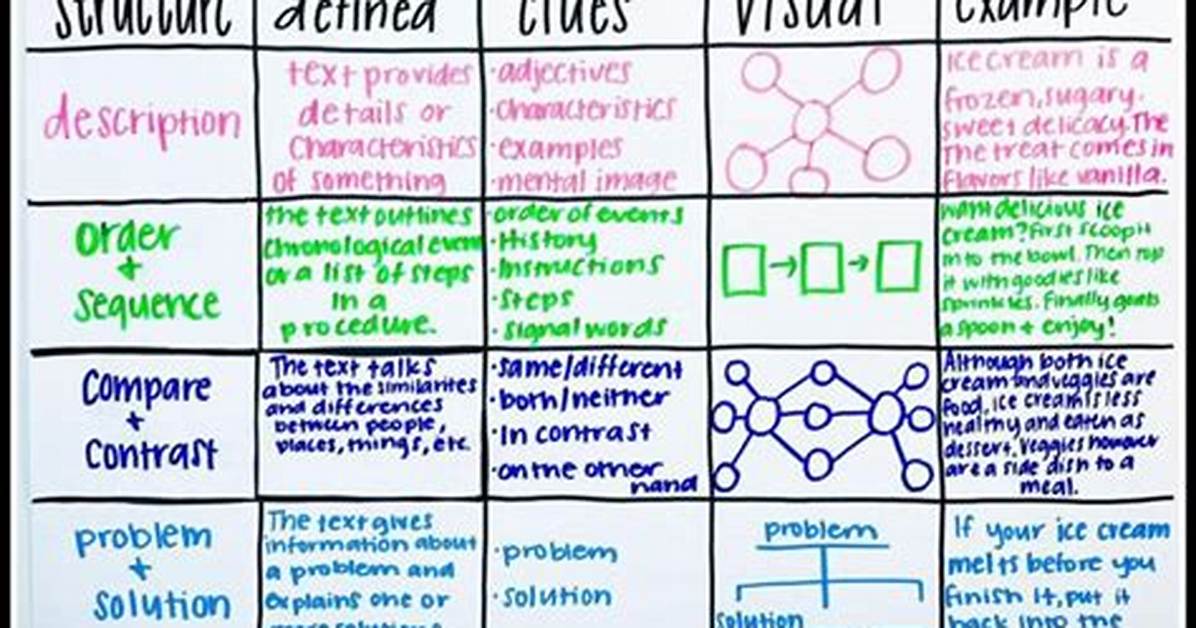 structure defined clues visual example
description
text provides
details or
characteristics
of something
·adjectives
·characteristics
·examples
·mental image
Ice cream is a
frozen, sugary,
sweet delicacy. The
The treat comes in
flavors like vanilla.
Order
+
Sequence
the text outlines
chronological event
or a list of steps
in a
procedure.
·order of events
·History
·Instructions
·Steps
·signal words
want delicious ice
cream? First scoop it
into the bowl. Then top
it with goodies like
sprinkles. Finally grab
a spoon + enjoy!
Compare
+
Contrast
The text talks
about the similarites
and differences
between people,
places, things, etc.
·same/different
·both/neither
·In contrast
·on the other
hand
Although both ice
cream and veggies are
food, ice cream is less
healthy and eaten as
dessert. Veggies however
are a side dish to a
meal.
problem
+
solution
The text gives
information about
a problem and
explains one or
more solutions
·problem
·solution
problem
solution
If your ice cream
melts before you
finish it, put it
back into the